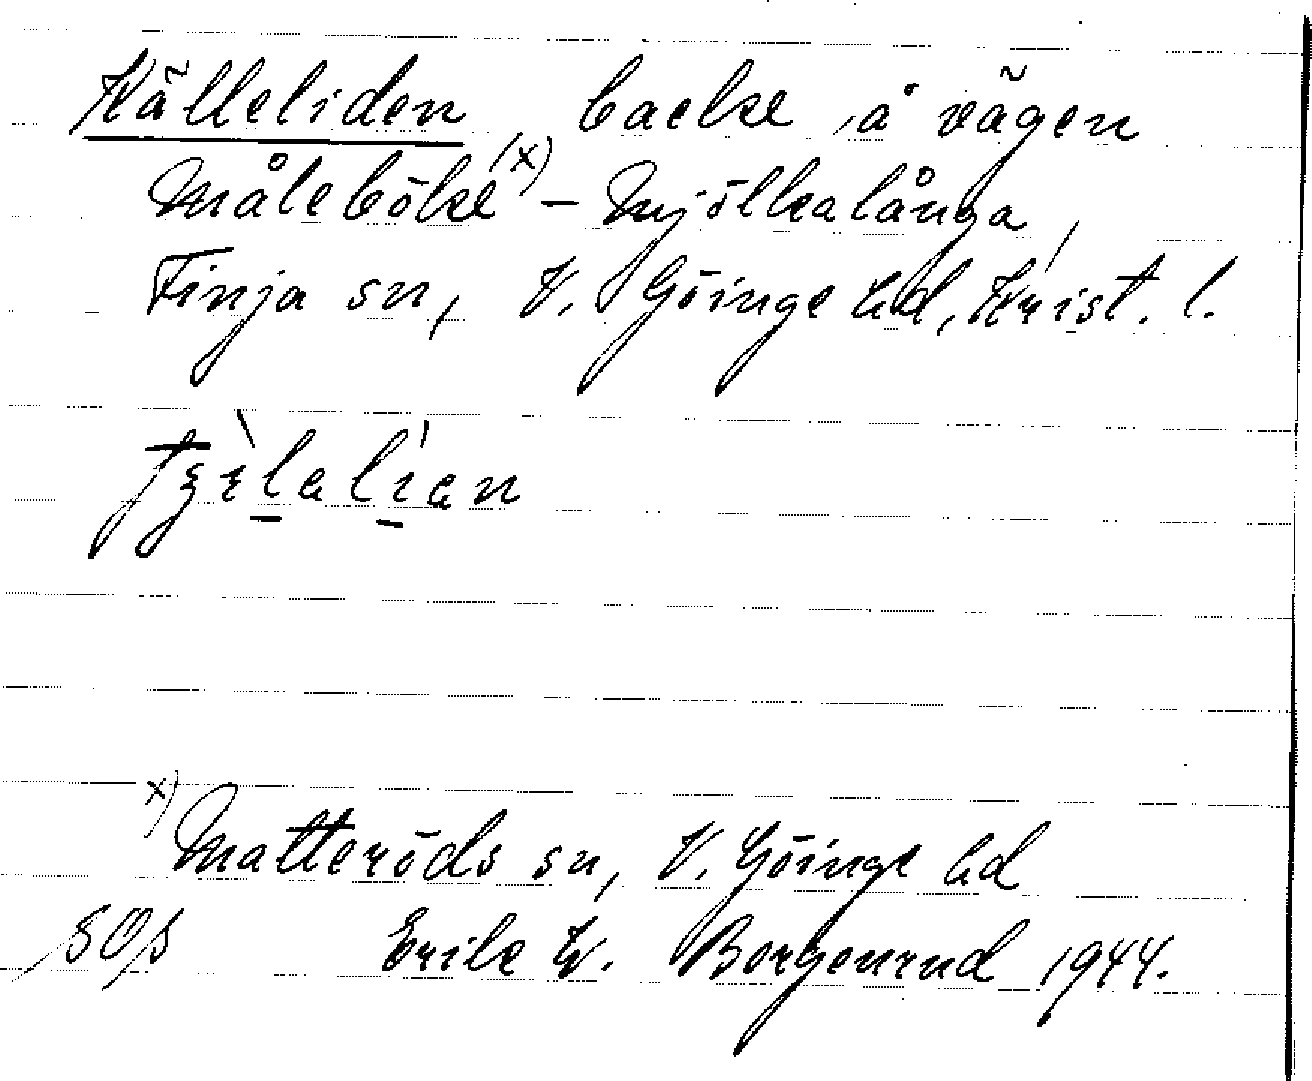 Källeliden backe å vägen
Måleböke (x) – Mjölkalånga,
Finja sn, V. Göinge hd, Krist. l.
x) Matteröds sn, V. Göinge hd
Erik W. Borgenrud 1944.